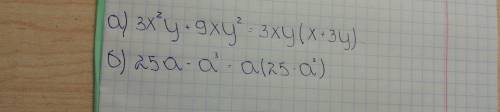 а) 3x²y + 9xy² = 3xy(x+3y)
б) 25a - a³ = a(25-a²)